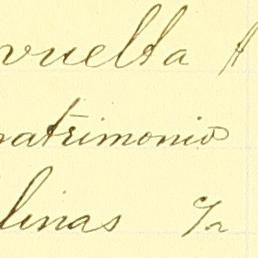 vuelta
matrimonio
linas